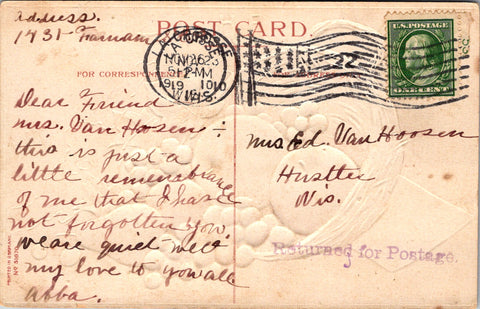 adress.
1431- Farnam
POST CARD.
LA CROSSE
WIS.
U.S. POSTAGE
ONE CENT
FOR CORRESPONDENCE
Dear Friend
mrs. Van Hoosen :
this is just a
little remembrance
of me that I hase
not forgotten you.
we are quiet well
my love to you all
abba.
Mrs Ed. Van Hoosen
Hustler
Wis.
Returned for Postage.
PRINTED IN GERMANY